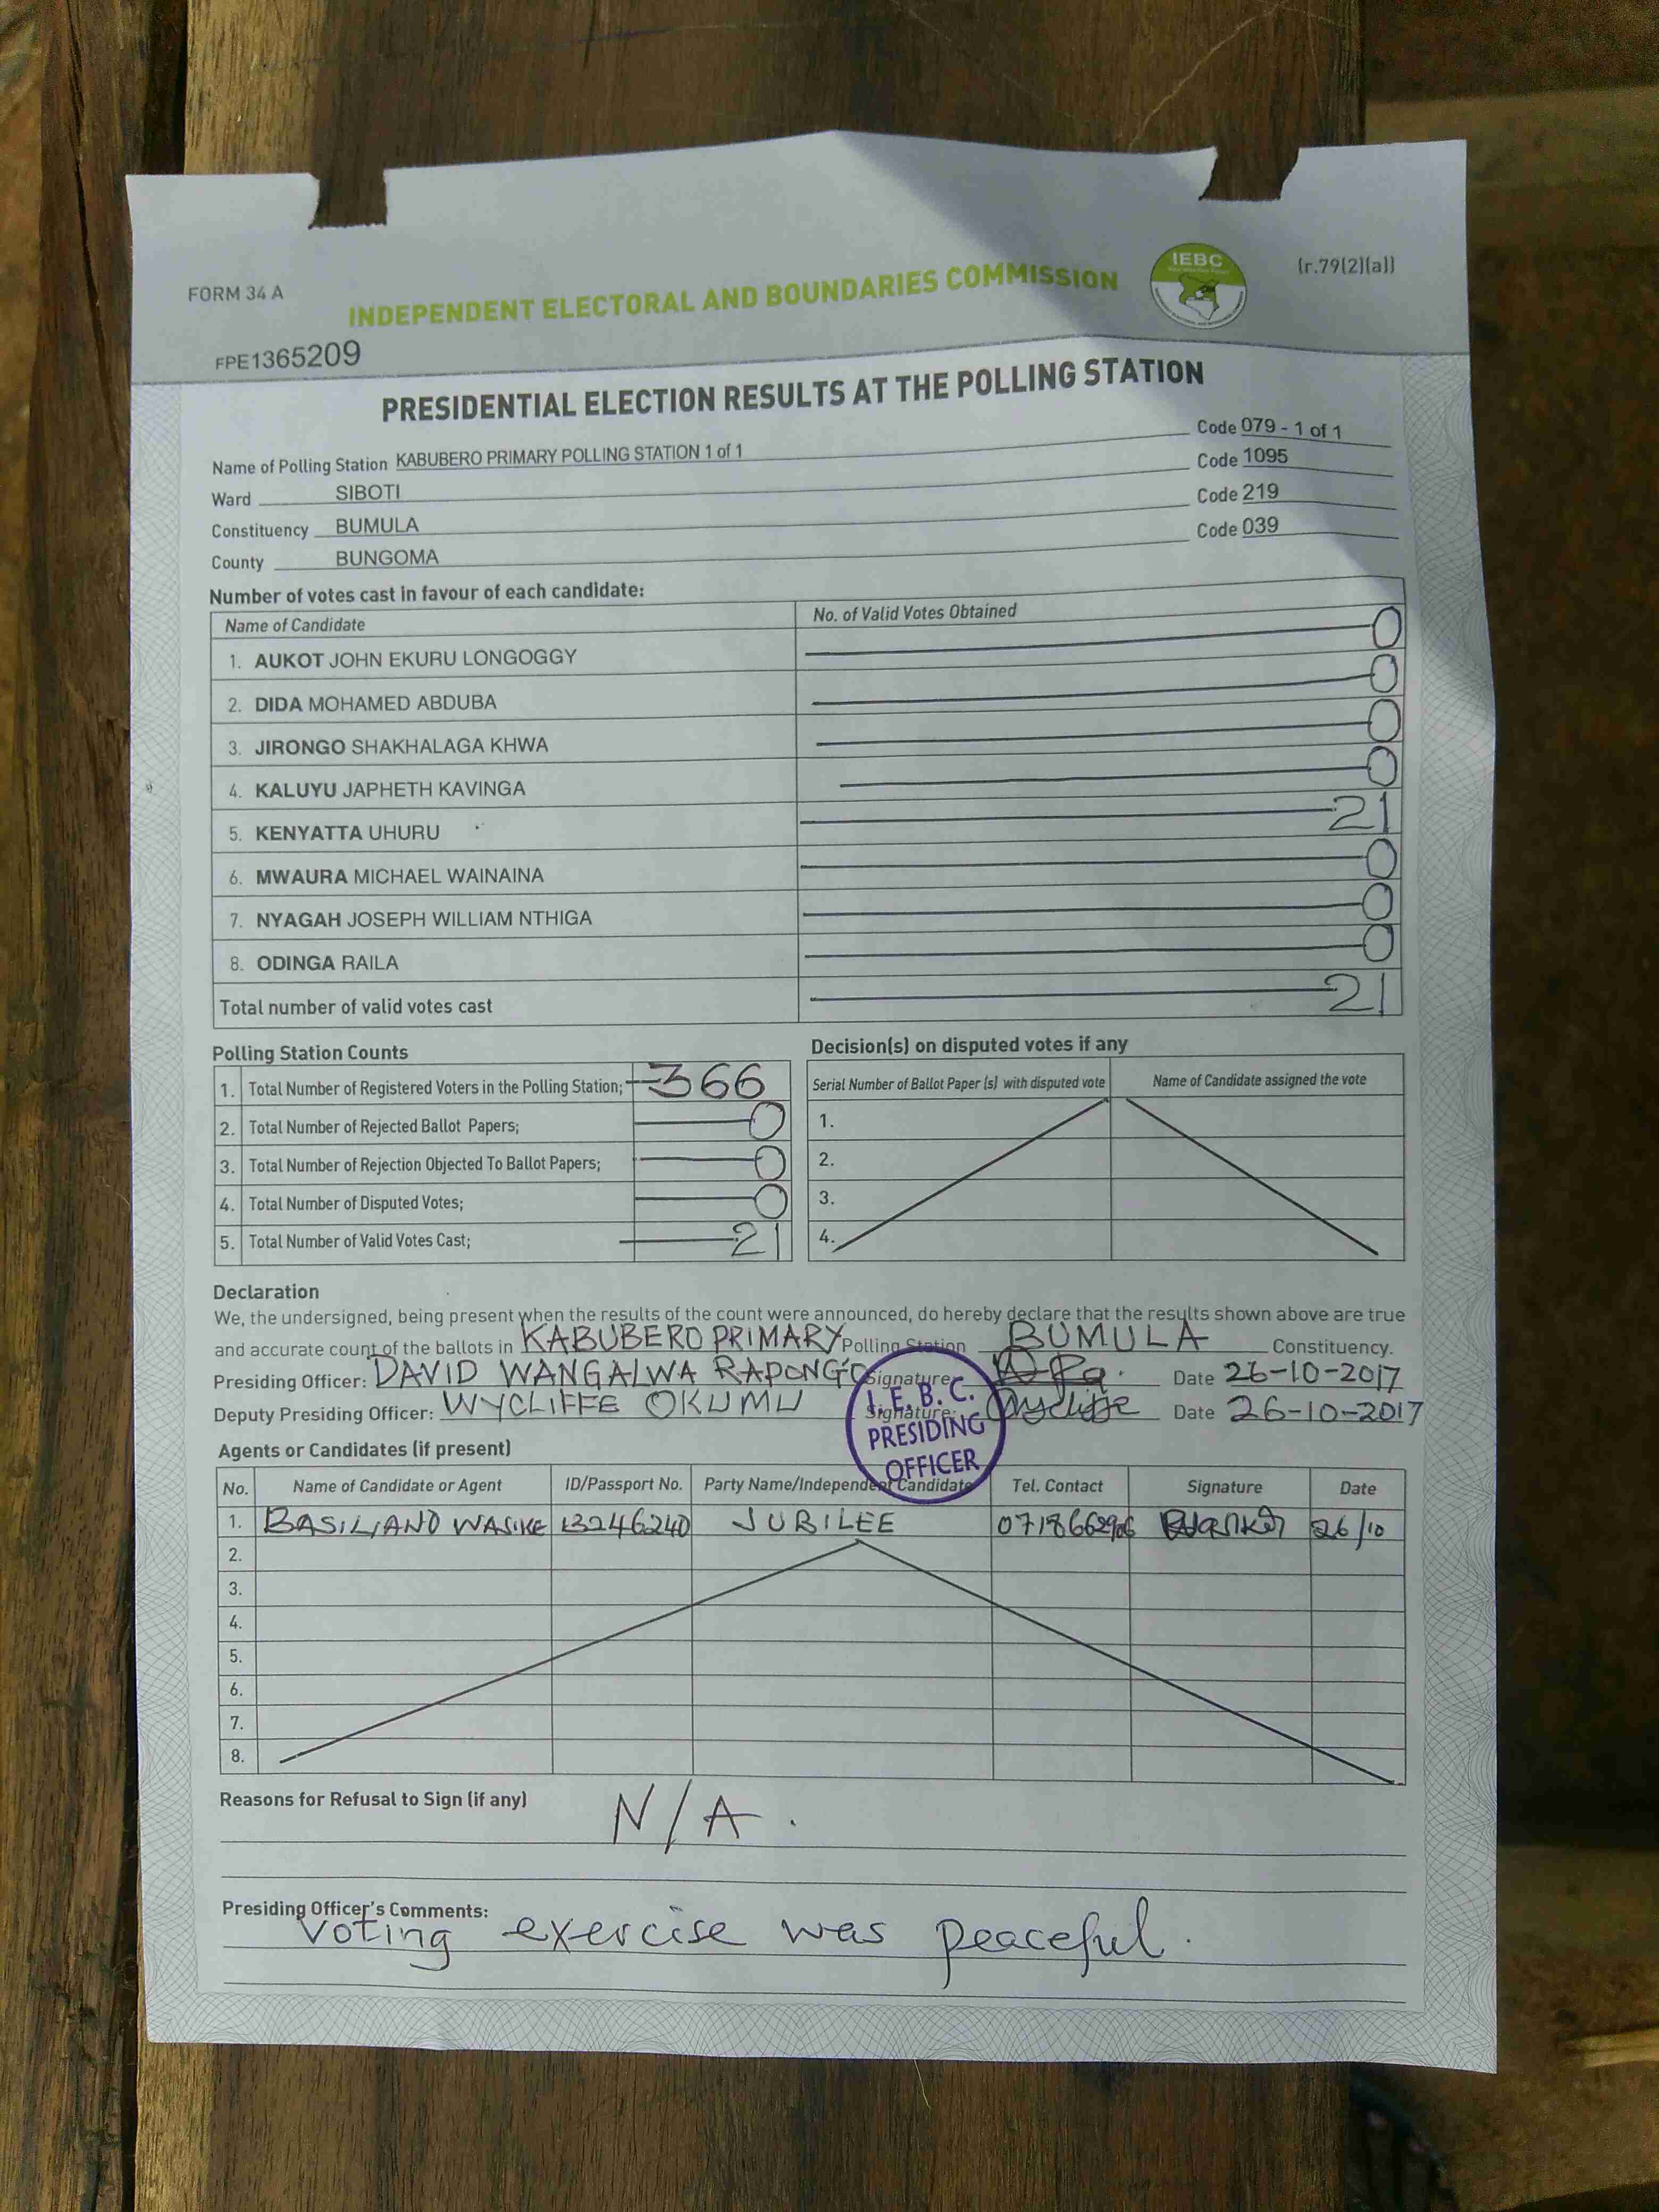 FORM 34 A
INDEPENDENT ELECTORAL AND BOUNDARIES COMMISSION
IEBC
(r.79(2)(a))
FPE1365209
PRESIDENTIAL ELECTION RESULTS AT THE POLLING STATION
Name of Polling Station KABUBERO PRIMARY POLLING STATION 1 of 1 Code 079 - 1 of 1
Ward SIBOTI Code 1095
Constituency BUMULA Code 219
County BUNGOMA Code 039
Number of votes cast in favour of each candidate:
Name of Candidate No. of Valid Votes Obtained
1. AUKOT JOHN EKURU LONGOGGY 0
2. DIDA MOHAMED ABDUBA 0
3. JIRONGO SHAKHALAGA KHWA 0
4. KALUYU JAPHETH KAVINGA 0
5. KENYATTA UHURU 21
6. MWAURA MICHAEL WAINAINA 0
7. NYAGAH JOSEPH WILLIAM NTHIGA 0
8. ODINGA RAILA 0
Total number of valid votes cast 21
Polling Station Counts
1. Total Number of Registered Voters in the Polling Station; 366
2. Total Number of Rejected Ballot Papers; 0
3. Total Number of Rejection Objected To Ballot Papers; 0
4. Total Number of Disputed Votes; 0
5. Total Number of Valid Votes Cast; 21
Decision(s) on disputed votes if any
Serial Number of Ballot Paper (s) with disputed vote Name of Candidate assigned the vote
1.
2.
3.
4.
Declaration
We, the undersigned, being present when the results of the count were announced, do hereby declare that the results shown above are true
and accurate count of the ballots in KABUBERO PRIMARY Polling Station BUMULA Constituency.
Presiding Officer: DAVID WANGALWA RAPONG'O Signature Date 26-10-2017
Deputy Presiding Officer: WYCLIFFE OKUMU Signature: Wycliffe Date 26-10-2017
I.E.B.C.
PRESIDING
OFFICER
Agents or Candidates (if present)
No. Name of Candidate or Agent ID/Passport No. Party Name/Independent Candidate Tel. Contact Signature Date
1. BASILIANO WASIKE 13246240 JUBILEE 0718662906 26/10
2.
3.
4.
5.
6.
7.
8.
Reasons for Refusal to Sign (if any) N/A.
Presiding Officer's Comments:
Voting exercise was peaceful.